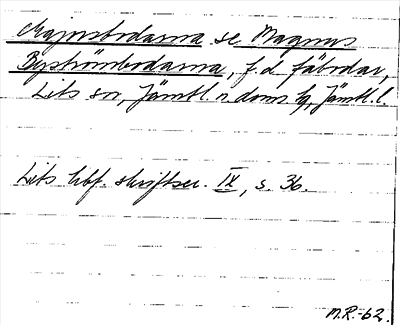 Majorsbodarna se Magnus
Byströmbodarna, f.d. fäbodar,
Lits sn, Jämtl. n. doms. hg, Jämtl. l.
Lits hbf. skriftser. IX, s. 36.
M.R.-62.